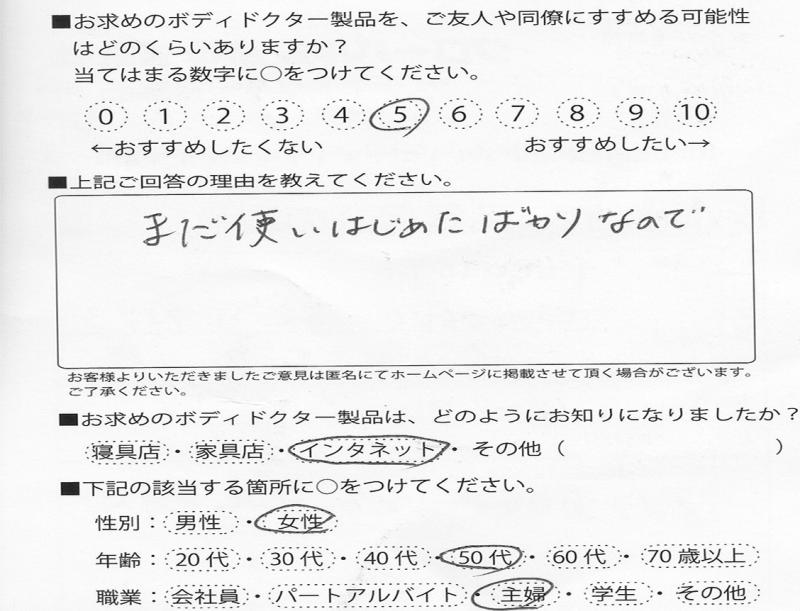 ■お求めのボディドクター製品を、ご友人や同僚にすすめる可能性
はどのくらいありますか？
当てはまる数字に○をつけてください。
0 1 2 3 4 5 6 7 8 9 10
←おすすめしたくない おすすめしたい→
■上記ご回答の理由を教えてください。
まだ使いはじめたばかりなので
お客様よりいただきましたご意見は匿名にてホームページに掲載させて頂く場合がございます。
ご了承ください。
■お求めのボディドクター製品は、どのようにお知りになりましたか？
寝具店・家具店・インタネット・その他（ ）
■下記の該当する箇所に○をつけてください。
性別：男性・女性
年齢：20代・30代・40代・50代・60代・70歳以上
職業：会社員・パートアルバイト・主婦・学生・その他